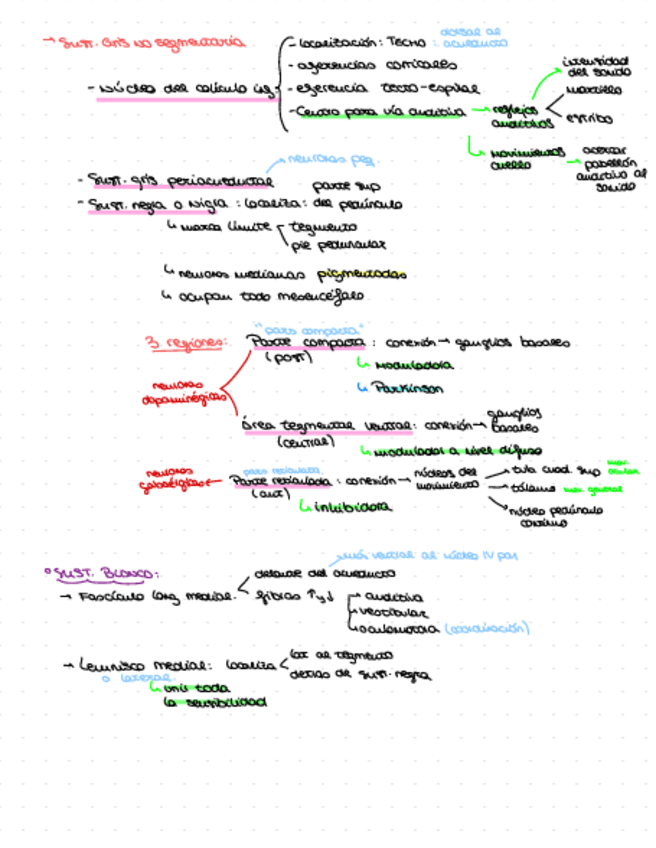 → Sust. Gris no segmentaria
- Núcleo del colículo inf.
- Localización: Techo : dorsal al acueducto
- aferencias corticales
- eferencia tecto-espinal
- Centro para vía auditiva → reflejos auditivos
intensidad del sonido
martillo
estribo
↳ movimientos cuello → acercar pabellón auditivo al sonido
- Sust. gris periacueductal → neuronas peq.
- Sust. negra o nigra : Localiza: parte sup del pedúnculo
↳ marca límite
tegmento
pie peduncular
↳ neuronas medianas pigmentadas
↳ ocupan todo mesencéfalo
3 regiones:
"pars compacta"
Parte compacta : conexión → ganglios basales
(post)
↳ Moduladora
↳ Parkinson
neuronas dopaminérgicas
Área tegmental ventral: conexión → ganglios basales
(central)
↳ modulador a nivel difuso
neuronas gabaérgicas ←
pars reticulata
Parte reticulada : conexión → núcleos del movimiento
(ant)
↳ inhibidora
→ tub cuad. sup mov. ocular
→ tálamo mov. general
→ núcleo pedúnculo
° SUST. BLANCA:
→ más ventral al núcleo IV par
→ Fascículo long medial.
delante del acueducto
fibras ↑ y ↓
→ auditiva
→ vestibular
→ oculomotora (coordinación)
→ Lemnisco medial: localiza
o lateral.
lat al tegmento
detrás de sust. negra
↳ unir toda
la sensibilidad